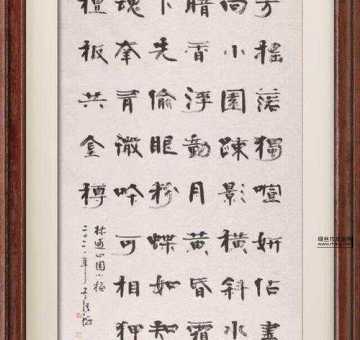 芳搖落獨喧妍佔盡
向小園疎影橫斜水
暗香浮動月黃昏霜
下先偷眼粉蝶如知
魂幸有微吟可相狎
檀板共金樽
林逋山園小梅
二〇二一年